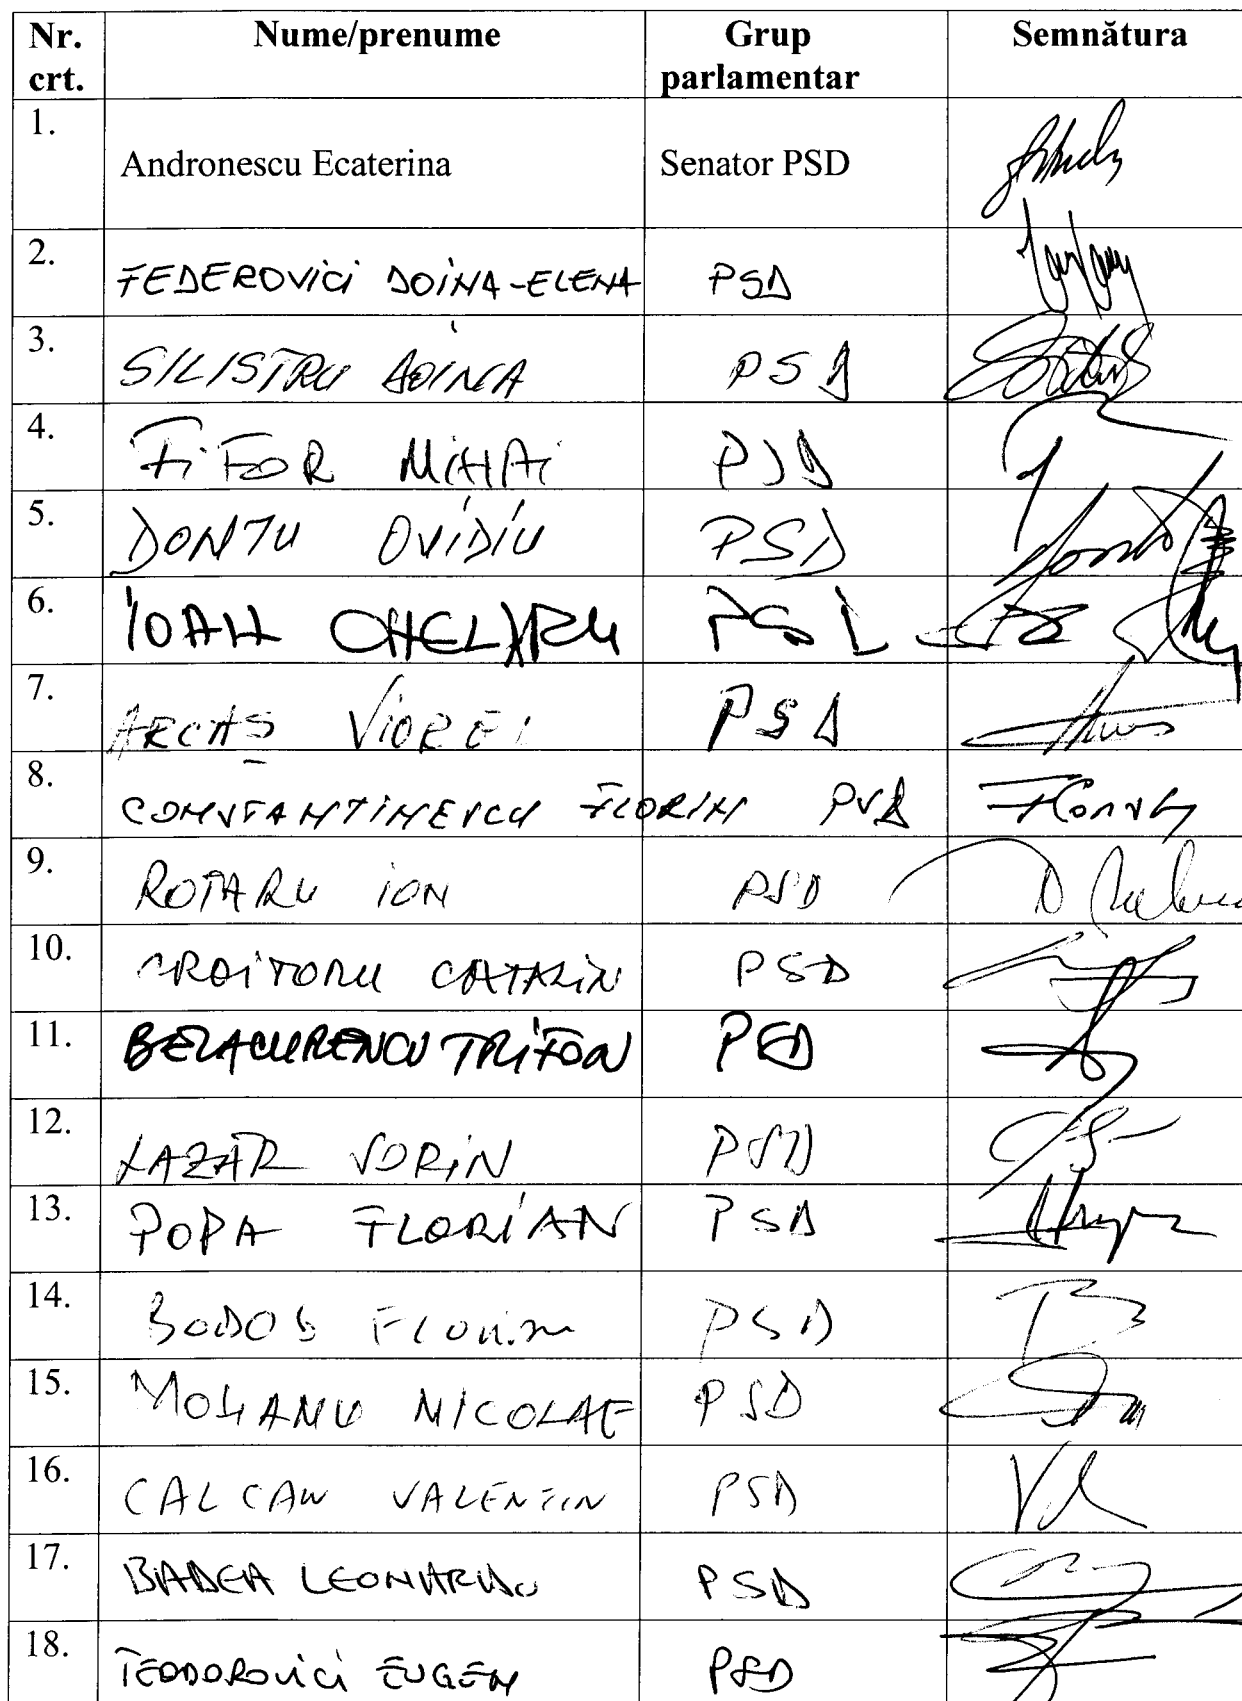 Nr. crt. Nume/prenume Grup parlamentar Semnătura
1. Andronescu Ecaterina Senator PSD
2. FEDEROVICI DOINA-ELENA PSD
3. SILISTRU DOINA PSD
4. FIFOR MIHAI PSD
5. DONTU OVIDIU PSD
6. IOAN CHELARU PSD
7. ARCAȘ VIOREL PSD
8. CONSTANTINESCU FLORIN PSD
9. ROTARU ION PSD
10. CROITORU CATALIN PSD
11. BELACURENCU TRIFON PSD
12. LAZAR SORIN PSD
13. POPA FLORIAN PSD
14. BODOG FLORIAN PSD
15. MOLANU NICOLAE PSD
16. CALCAN VALENTIN PSD
17. BADEA LEONARDO PSD
18. TEODOROVICI EUGEN PSD